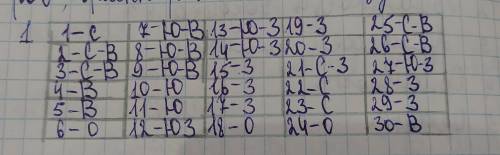 1 1-С 7-Ю-В 13-Ю-З 19-З 25-С-В
2-С-В 8-Ю-В 14-Ю-З 20-З 26-С-В
3-С-В 9-Ю-В 15-З 21-С-З 27-Ю-З
4-В 10-Ю 16-З 22-С 28-З
5-В 11-Ю 17-З 23-С 29-З
6-О 12-ЮЗ 18-О 24-О 30-В